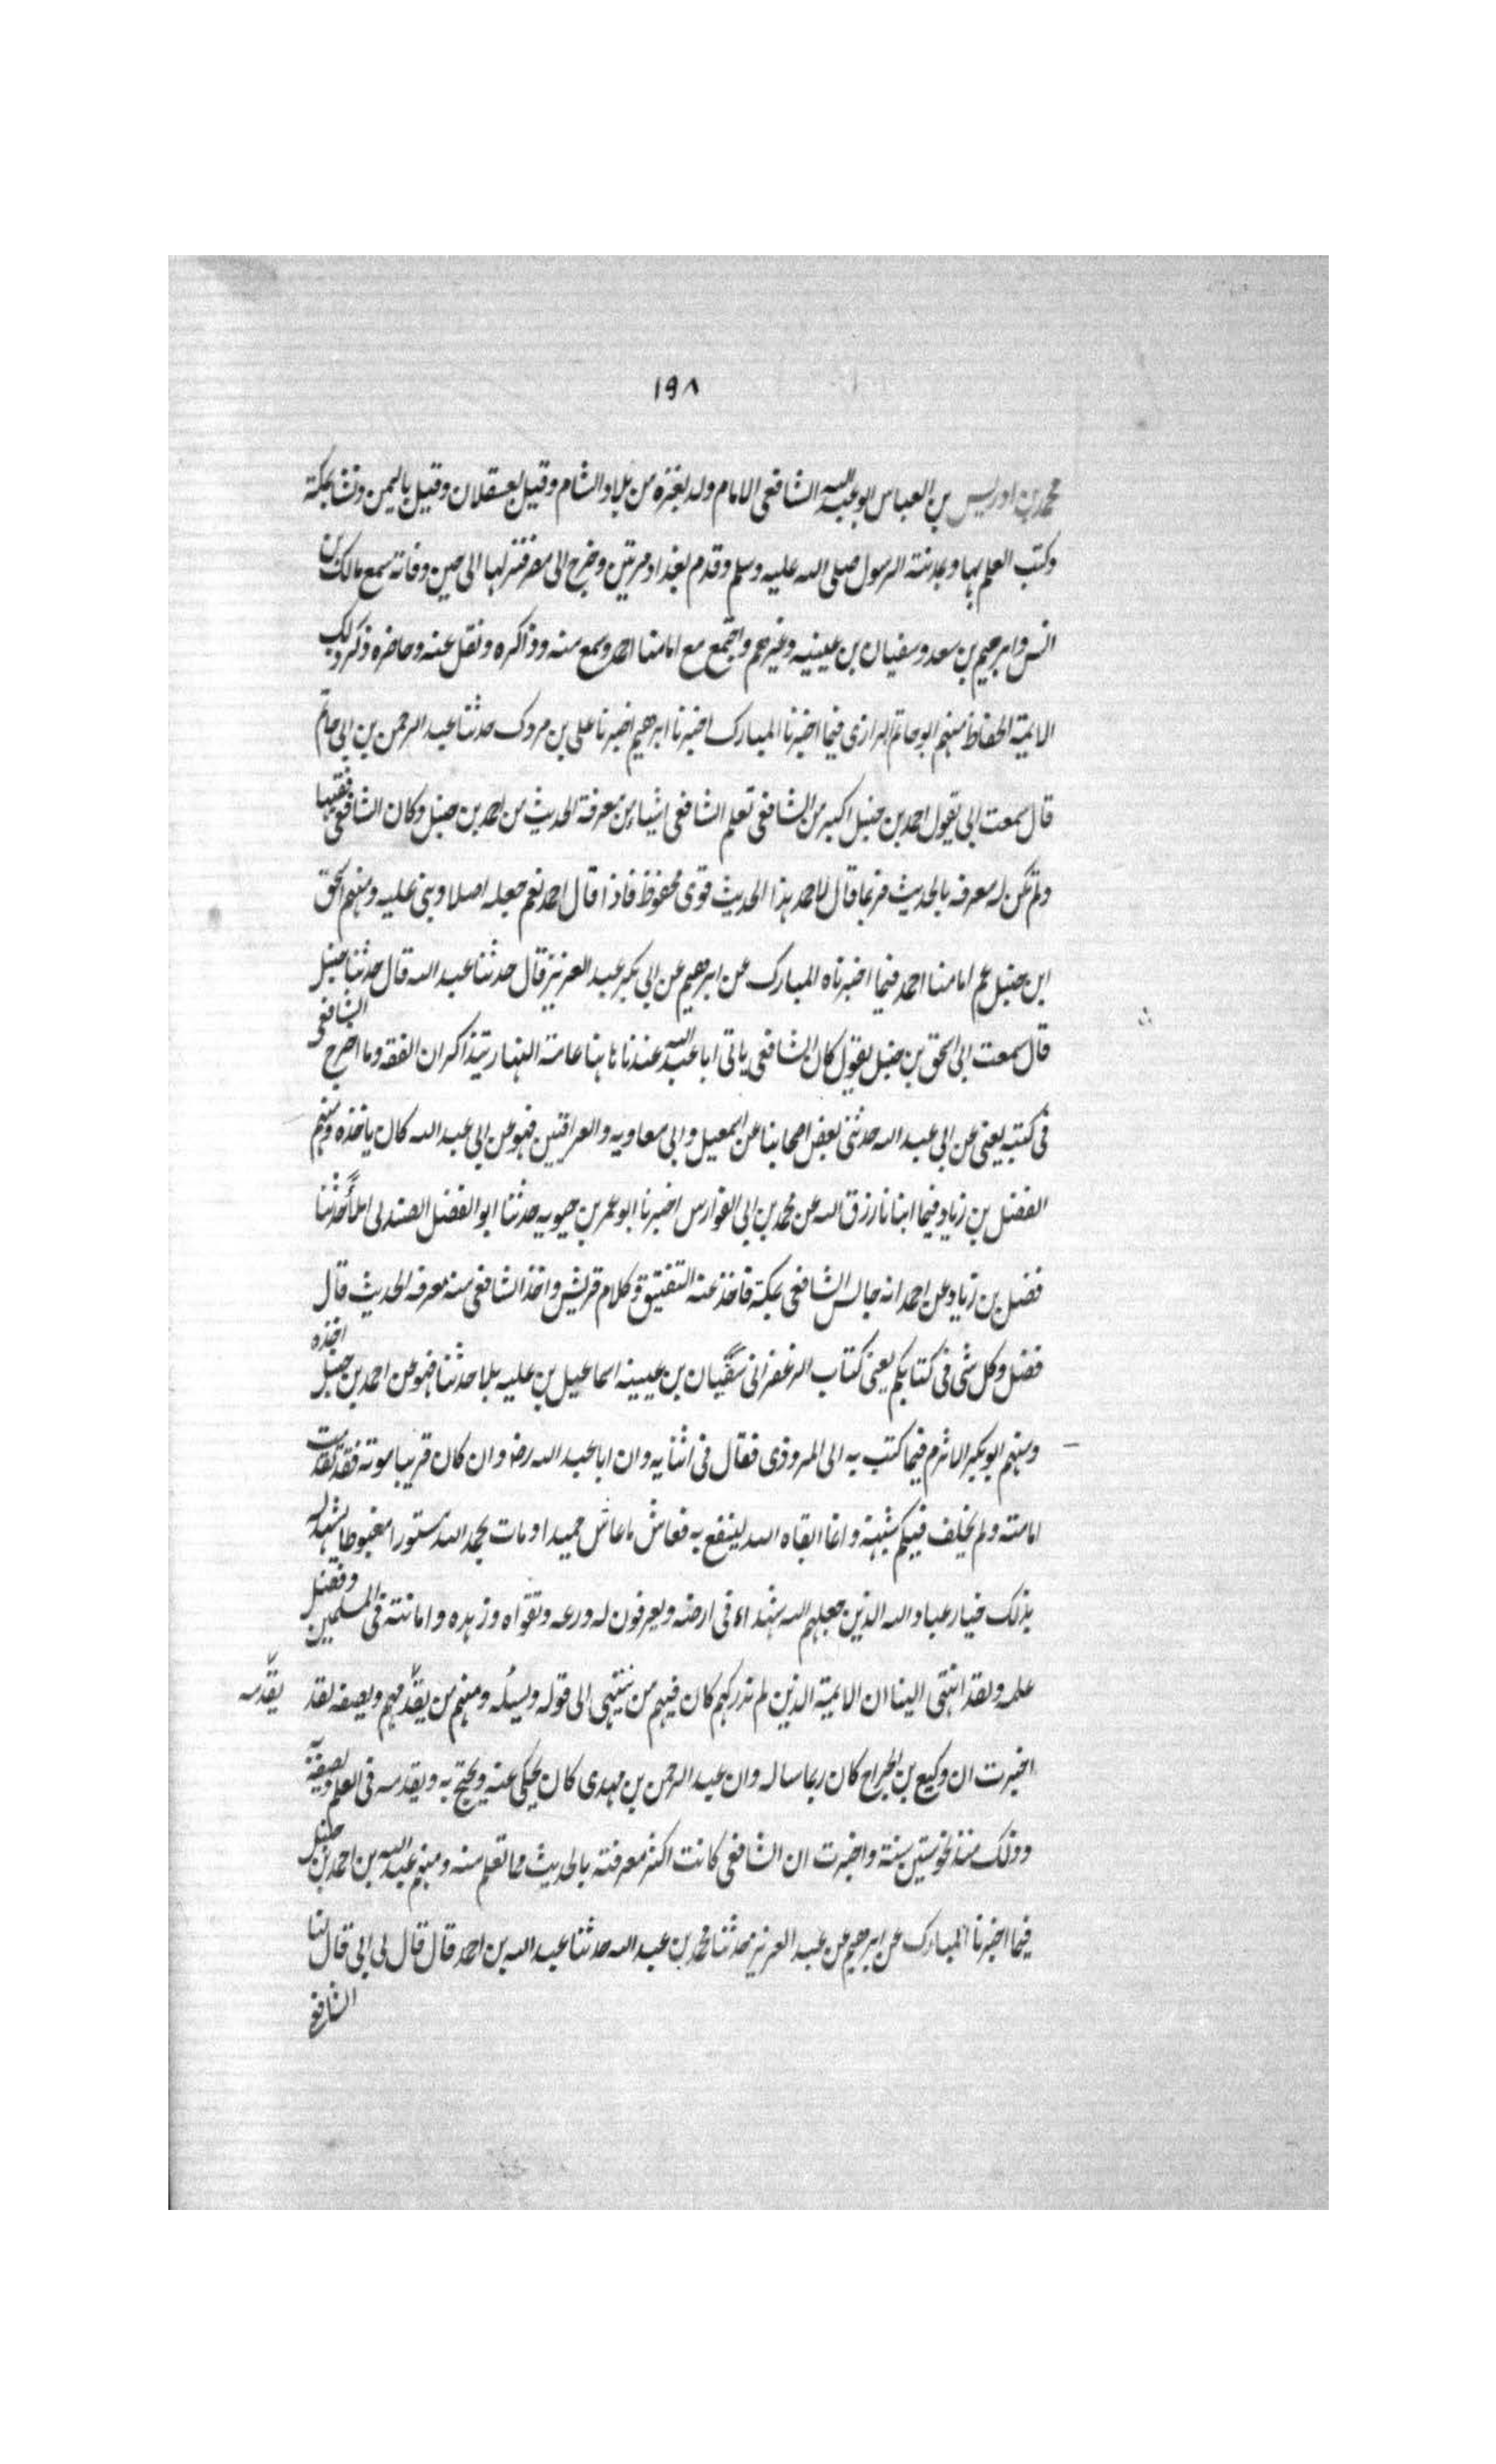 ١٩٨
محمد بن ادريس بن العباس ابو عبد الله الشافعى الامام ولد بغزة من بلاد الشام وقيل بعسقلان وقيل باليمن ونشا بمكة
وكتب العلم بها وبمدينة الرسول صلى الله عليه وسلم وقدم بغداد مرتين وخرج الى مصر فنزلها الى حين وفاته سمع مالك بن
انس وابرهيم بن سعد وسفيان بن عيينه وغيرهم واجتمع مع امامنا احمد وسمع منه وذاكره ونقل عنه وحاضره وذكر ذلك
الايمة الحفاظ منهم ابو حاتم الرازى فيما اخبرنا المبارك اخبرنا ابرهيم اخبرنا على بن مردك حدثنا عبد الرحمن بن ابى حاتم
قال سمعت ابى يقول احمد بن حنبل اكبر من الشافعى تعلم الشافعى اشياء من معرفة الحديث من احمد بن حنبل وكان الشافعى فقيها
ولم تكن له معرفه بالحديث فربما قال لاحمد هذا الحديث قوى محفوظ فاذا قال احمد نعم جعله اصلا وبنى عليه ومنهم اسحق
ابن حنبل عم امامنا احمد فيما اخبرناه المبارك عن ابرهيم عن ابى بكر عبد العزيز قال حدثنا عبد الله قال حدثنا حنبل
قال سمعت ابى اسحق بن حنبل يقول كان الشافعى ياتى ابا عبد الله عندنا هاهنا عامة النهار يتذاكران الفقه وما اخرج الشافعى
فى كتبه يعنى عن ابى عبد الله حدثنى بعض اصحابنا عن اسمعيل وابى معاويه والعراقيين فهو عن ابى عبد الله كان ياخذه ومنهم
الفضل بن زياد فيما انبانا رزق الله عن محمد بن ابى الفوارس اخبرنا ابو عمر بن حيويه حدثنا ابو الفضل الصندلى املاً حدثنا
فضل بن زياد عن احمد انه جالس الشافعى بمكة فاخذ عنه التفتيق وكلام قريش واخذ الشافعى منه معرفه الحديث قال
فضل وكل شى فى كتابكم يعنى كتاب الزعفرانى سفيان بن عيينه اسماعيل بن عليه بلا حدثنا فهو عن احمد بن حنبل اخذه
ومنهم ابو بكر الاثرم فيما كتب به الى المروذى فقال فى اثنايه وان ابا عبد الله رضه وان كان قريبا موته فقد تقدمت
امامته ولم يخلف فيكم شبهه وانما ابقاه الله لينفع به فعاش ما عاش حميدا ومات بحمد الله مستورا مغبوطا يشهد له
بذلك خيار عباد الله الذين جعلهم الله شهداء فى ارضه ويعرفون له ورعه وتقواه وزهده وامانته فى المسلمين وفضل
علمه ولقد انتهى الينا ان الايمة الذين لم ندركهم كان فيهم من ينتهى الى قوله ويسئله ومنهم من يقدّمهم ويصفه لقد
يقدّمه
اخبرت ان وكيع بن الجراح كان ربما ساله وان عبد الرحمن بن مهدى كان يحكى عنه ويحتج به ويقدمه فى العلم ويصفه
وذلك منذ نحو ستين سنة واخبرت ان الشافعى كانت اكثر معرفته بالحديث مما تعلم منه ومنهم عبد الله بن احمد بن حنبل
فيما اخبرنا المبارك عن ابرهيم عن عبد العزيز حدثنا محمد بن عبد الله حدثنا عبد الله بن احمد قال قال لى ابى قال لنا
الشافعى